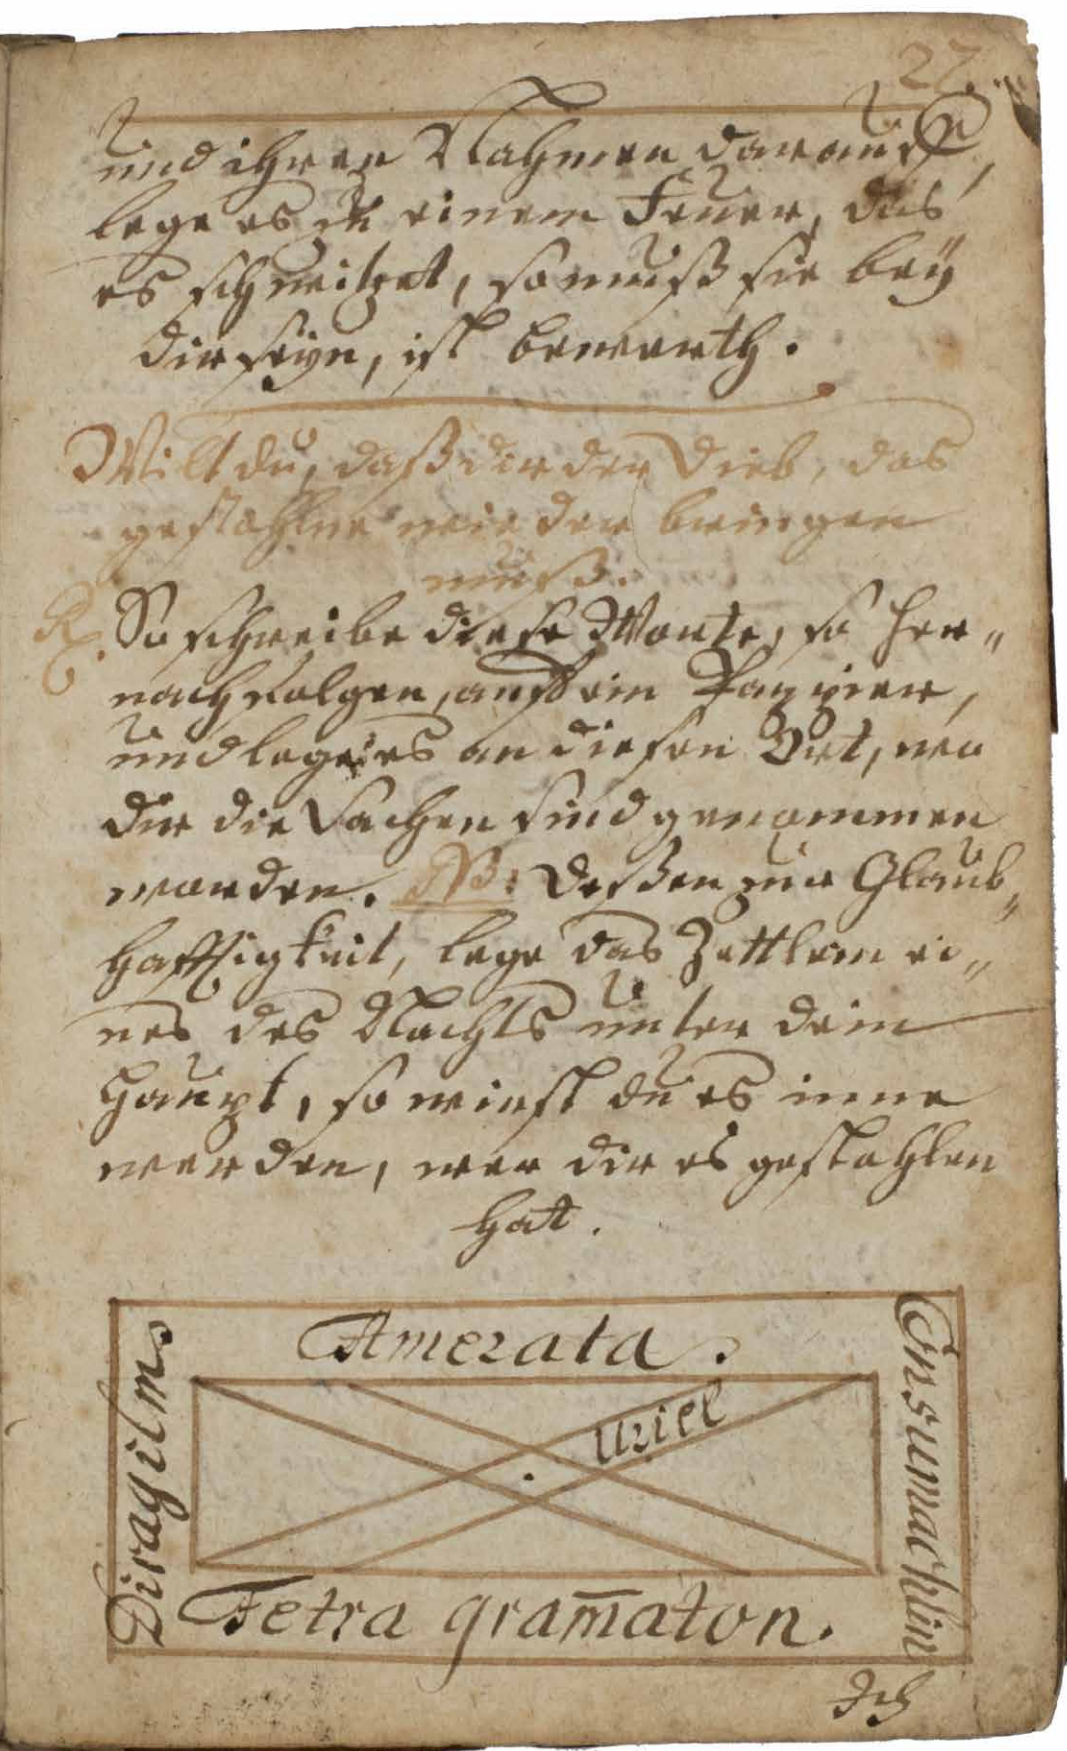 27.
und ihren Nahmen darauf,
lege es zu einem Feuer, das
es schwitzet, so muß sie beÿ
dir seÿn, ist bewerth.
Wilt du, daß dir der Dieb, das
gestohlne wieder bringen
muß.
Rx. So schreibe diese Worte, so her„
nach folgen, auff ein Pappier,
und lege es an diesen Ort, wo
dir die Sachen sind genommen
worden. NB: Deßen zur Glaub„
hafftigkeit, lege das Zettlein ei„
nes des Nachts unter dein
Haupt, so wirst du es inne
werden, wer dir es gestohlen
hat.
Amerata.
Uriel
Diragilm.
Ensumachlin
Tetra gram̄aton.
Ich